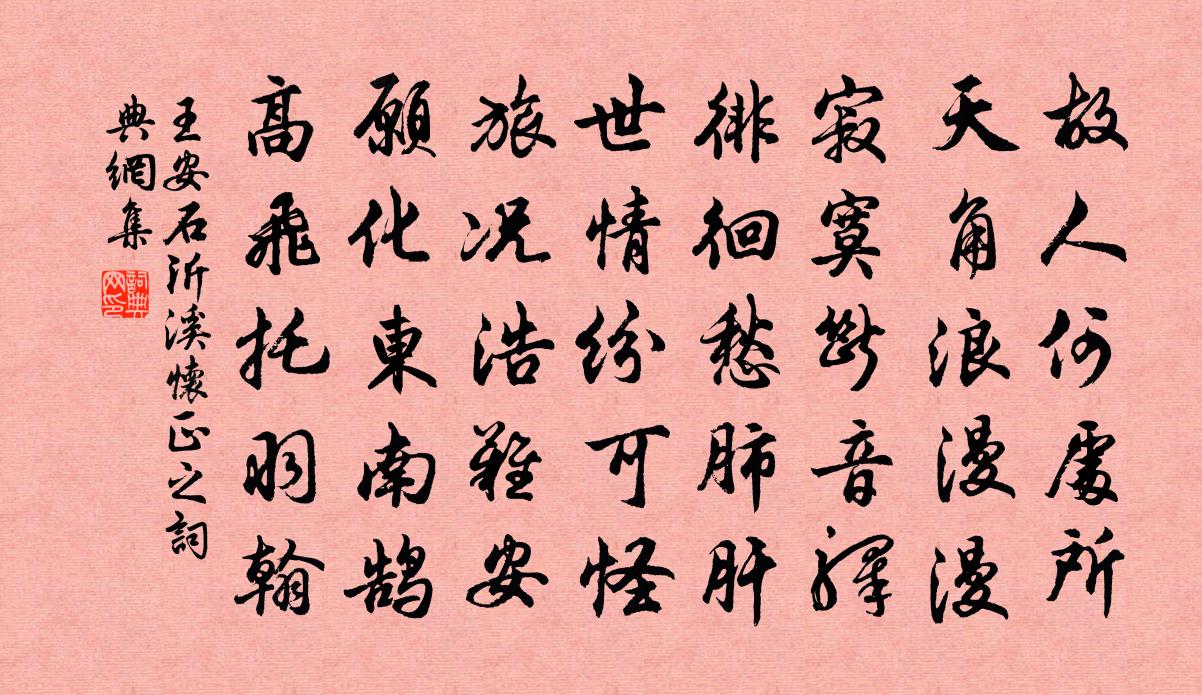 故人何處所
天角浪漫漫
寂寞斷音驛
徘徊愁肺肝
世情紛可怪
旅况浩難安
願化東南鵠
高飛托羽翰
王安石沂溪懷正之詞
典網集
詞典網印